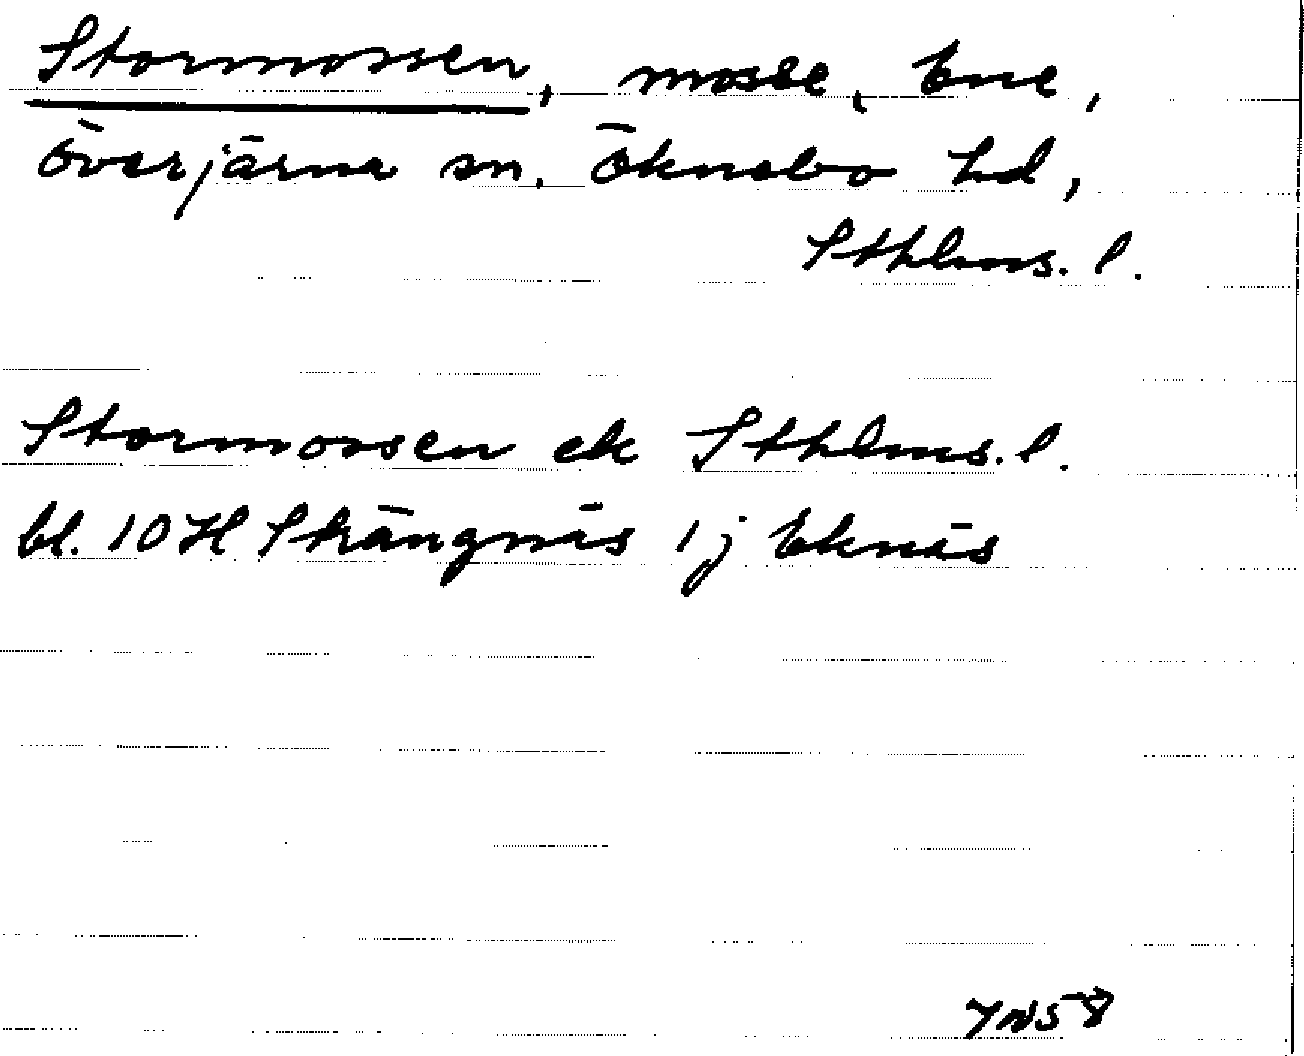 Stormossen, mosse, Ene,
Överjärna sn, Öknebo hd,
Sthlms. l.
Stormossen ek Sthlms. l.
bl. 10H Strängnäs 1j Eknäs